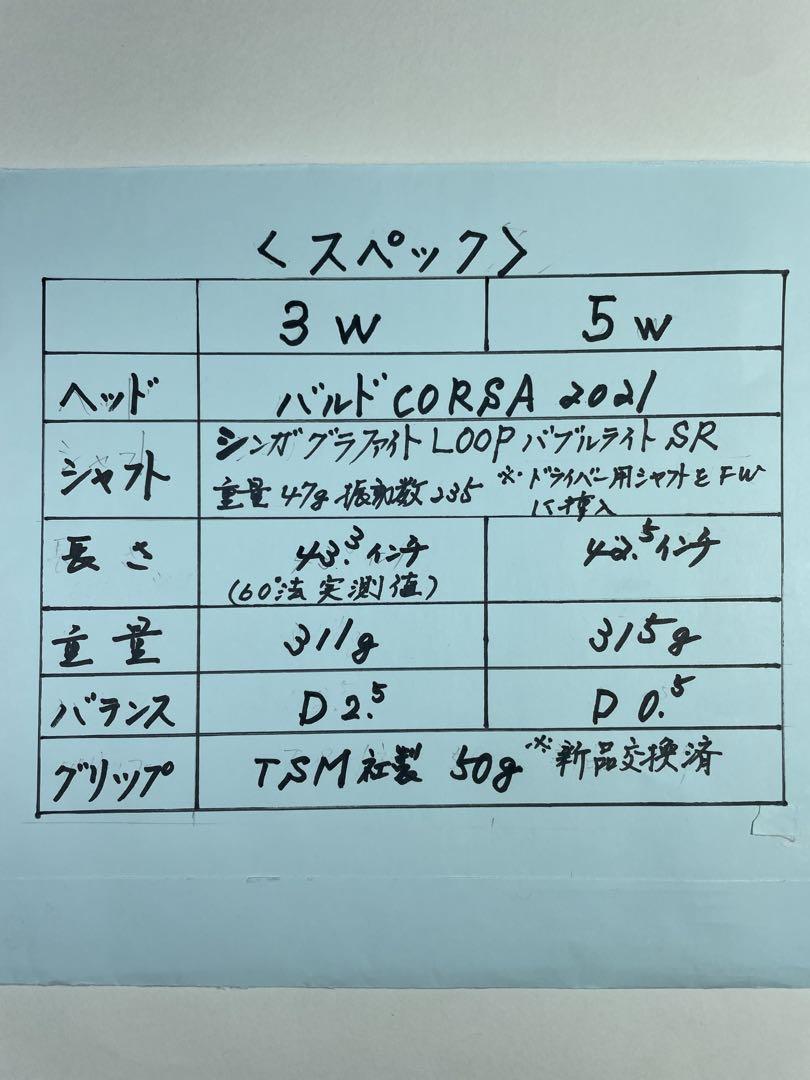 〈スペック〉
3W 5W
ヘッド バルドCORSA 2021
シャフト シンカグラファイトLOOPバブルライトSR
重量47g 振動数235 ※ドライバー用シャフトをFW
に挿入
長さ 43.3インチ 42.5インチ
(60°法実測値)
重量 311g 315g
バランス D2.5 D0.5
グリップ TSM社製 50g ※新品交換済